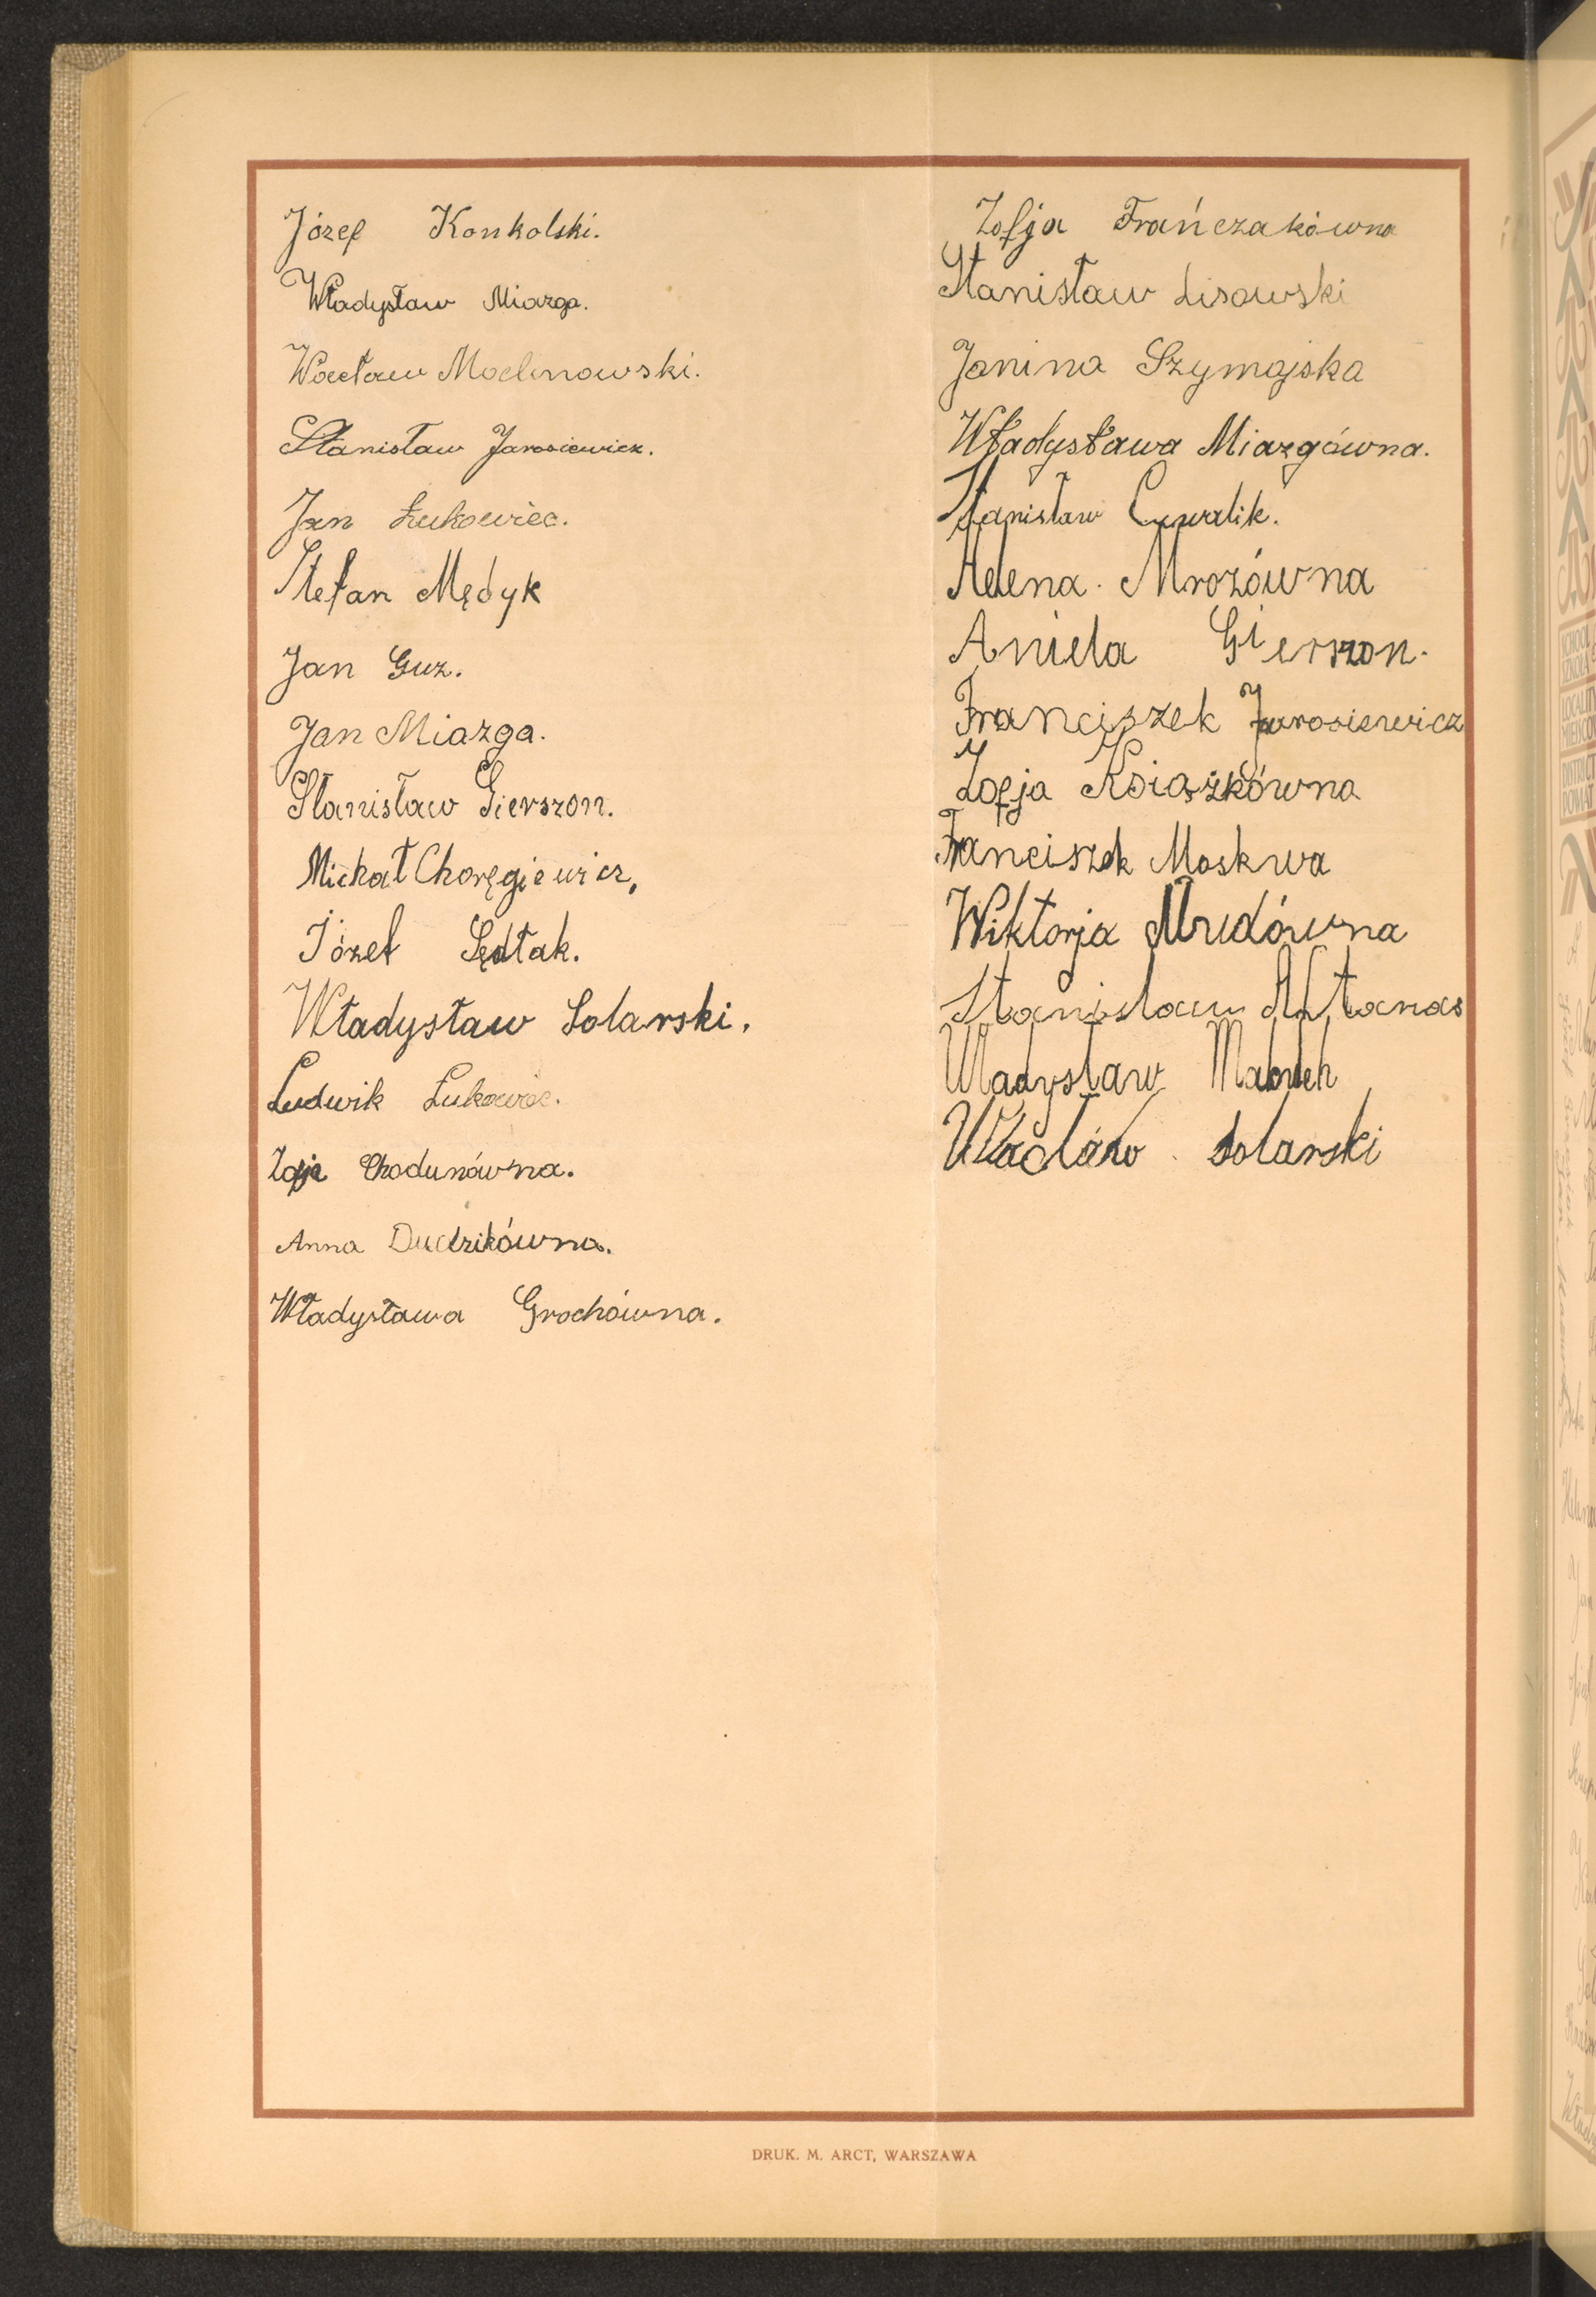 Józef Konkolski.
Władysław Miazga.
Wacław Modlinowski.
Stanisław Jarosiewicz.
Jan Łukowiec.
Stefan Mędyk
Jan Guz.
Jan Miazga.
Stanisław Gierszon.
Michał Choręgiewicz,
Józef Sędłak.
Władysław Solarski.
Ludwik Łukowiec.
Zofja Chodunówna.
Anna Dudzikówna.
Władysława Grochówna.
Zofja Frańczakówna
Stanisław Lisowski
Janina Szymajska
Władysława Miazgówna.
Stanisław Cywalik.
Helena Mrozówna
Aniela Gierszon.
Franciszek Jarosiewicz
Zofja Książkówna
Franciszek Moskwa
Wiktorja Mudówna
Stanisław Altanas
Władysław
Wacław Solarski
DRUK. M. ARCT, WARSZAWA